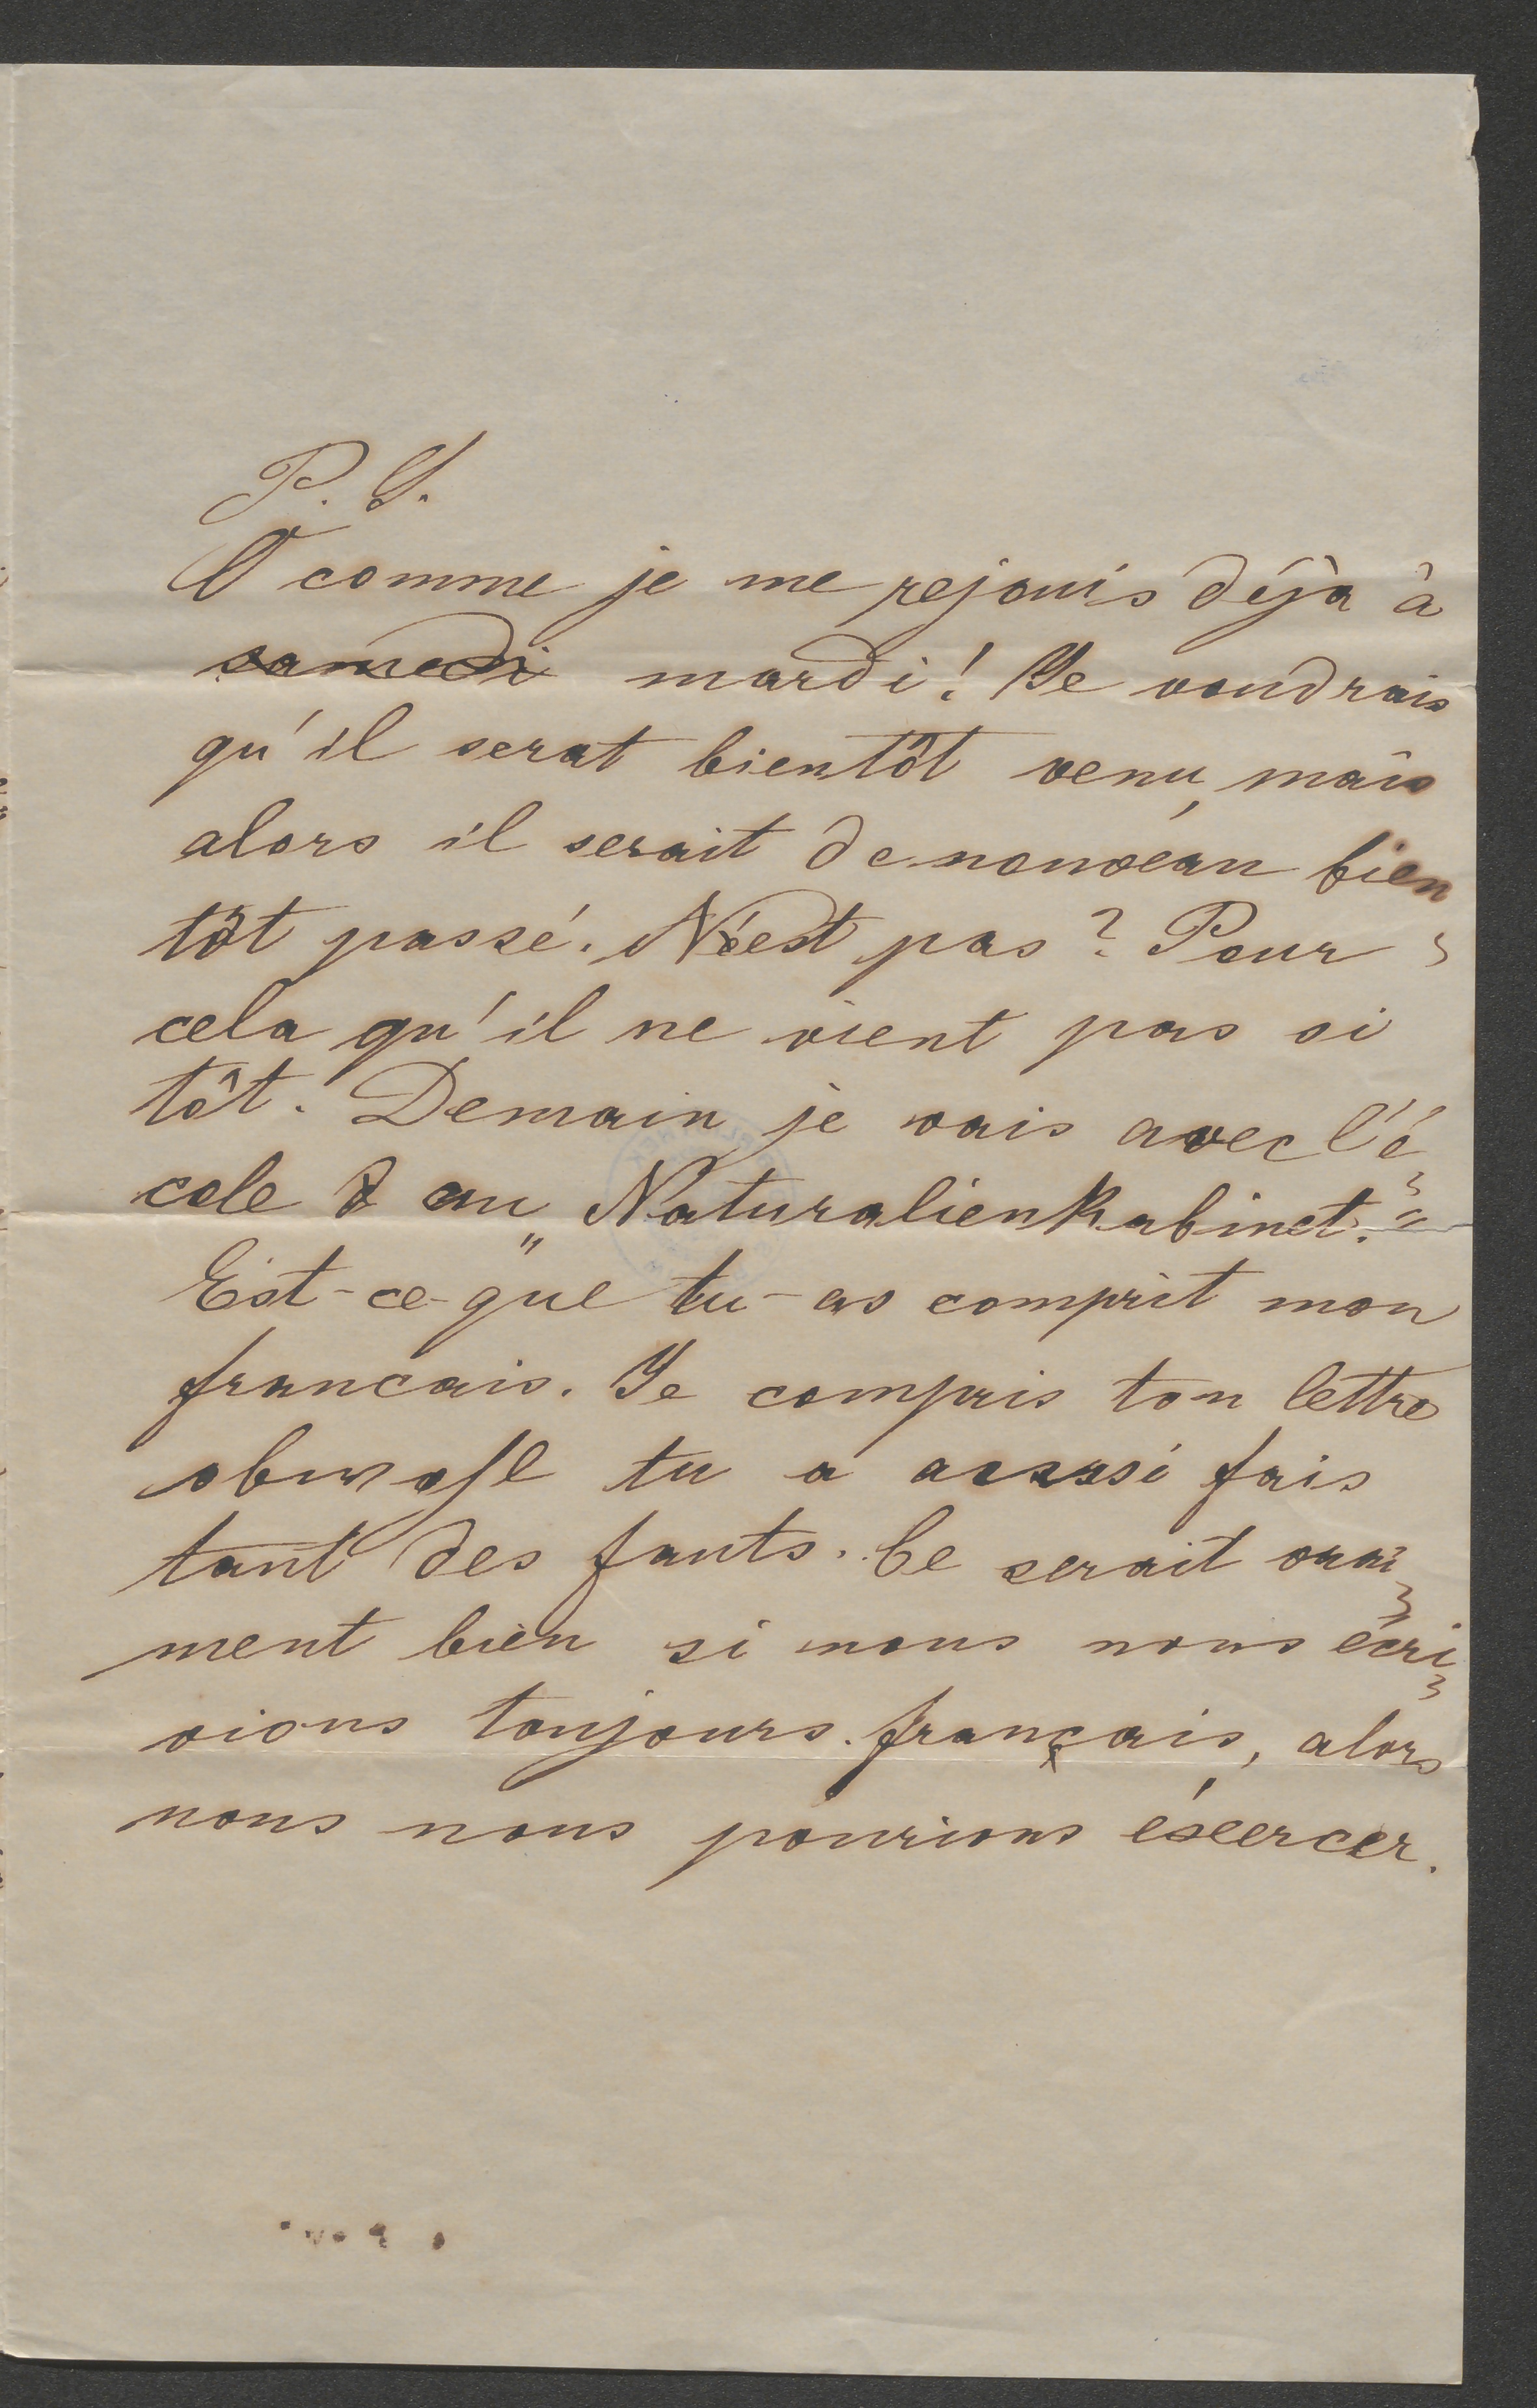 P. S.
O comme je me rejouis déjà à
samedi mardi! Je voudrais
qu'il serat bientôt venu, mais
alors il serait de nouveau bien
tôt passé. N'éest pas? Pour
cela qu'il ne vient pas si
tôt. Demain je vais avec l'é
cole d au „Naturalienkabinet."
Est-ce-que tu-as comprit mon
francais. Je compris ton lettre
obwohl tu a aussi fais
tant des fauts. Ce serait vrai
ment bien si nous nous écri
vions toujours français, alors
nous nous pourions éxercer.